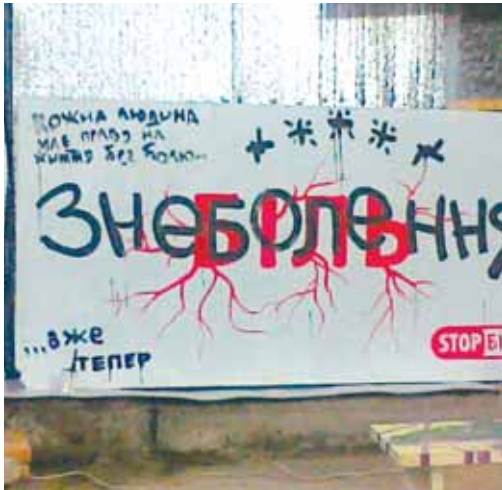 КОЖНА ЛЮДИНА
МАЄ ПРАВО НА
ЖИТТЯ БЕЗ БОЛЮ...
Знеболення
БІЛЬ
...вже
тепер
STOP